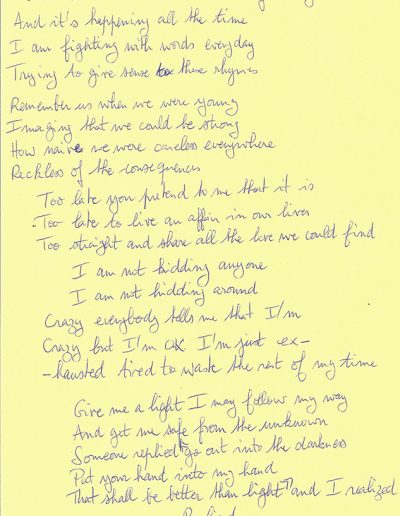 And it's happening all the time
I am fighting with words everyday
Trying to give sense to these rhymes
Remember us when we were young
Imaging that we could be strong
How naive we were careless everywhere
Reckless of the consequences
Too late you pretend to me that it is
Too late to live an affair in our lives
Too straight and share all the love we could find
I am not kidding anyone
I am not kidding around
Crazy everybody tells me that I'm
Crazy but I'm OK I'm just ex-
-hausted tired to waste the rest of my time
Give me a light I may follow my way
And get me safe from the unknown
Someone replied "go out into the darkness
Put your hand into my hand
That shall be better than light" and I realized